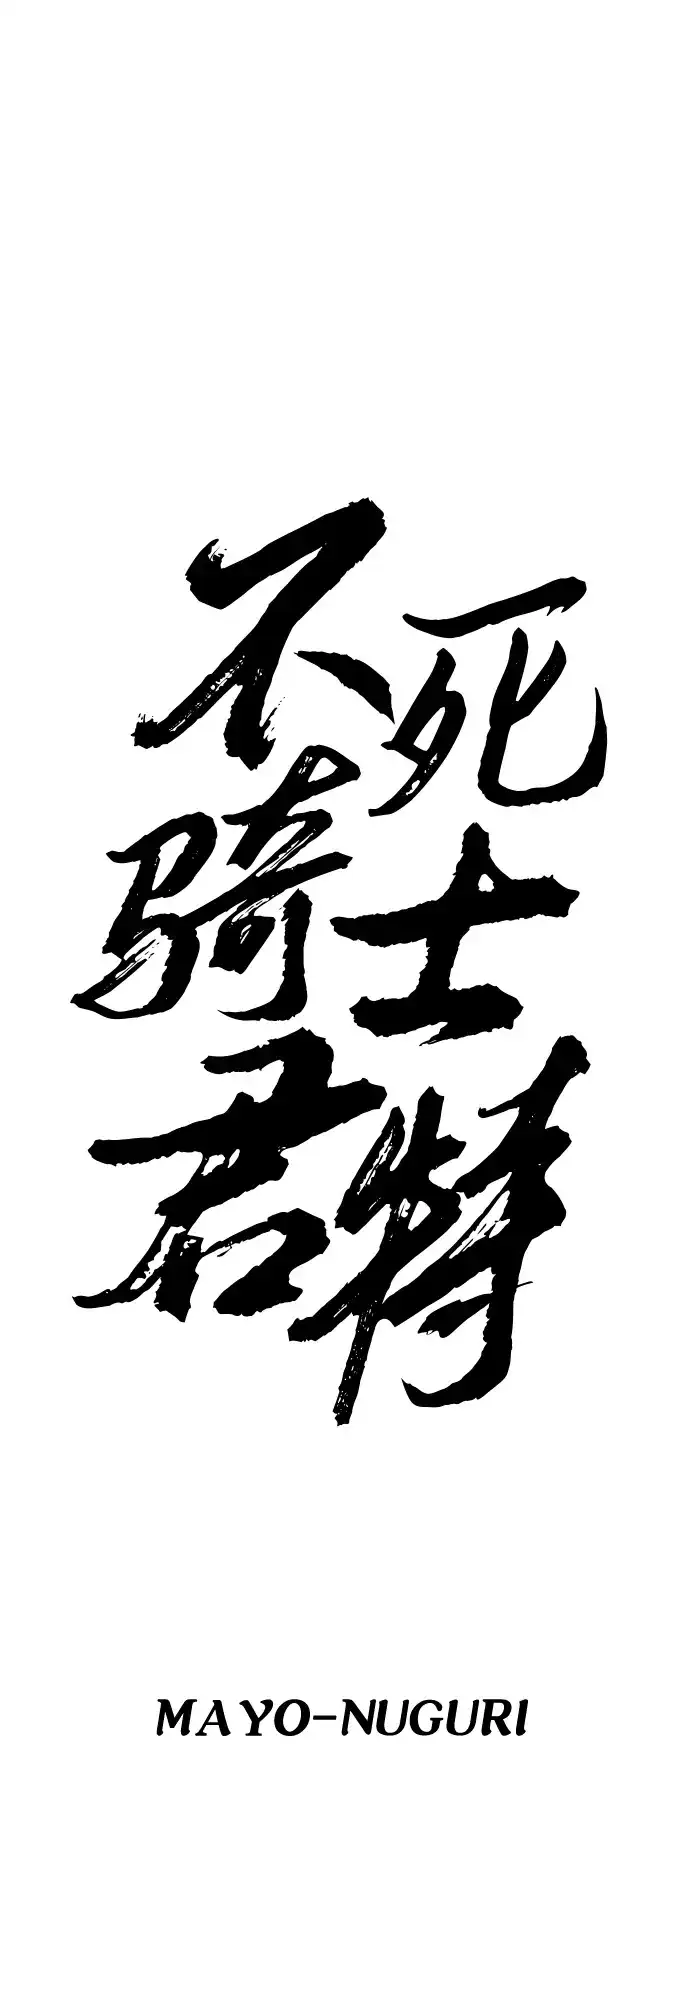 不死
骑士
君特
MAYO-NUGURI